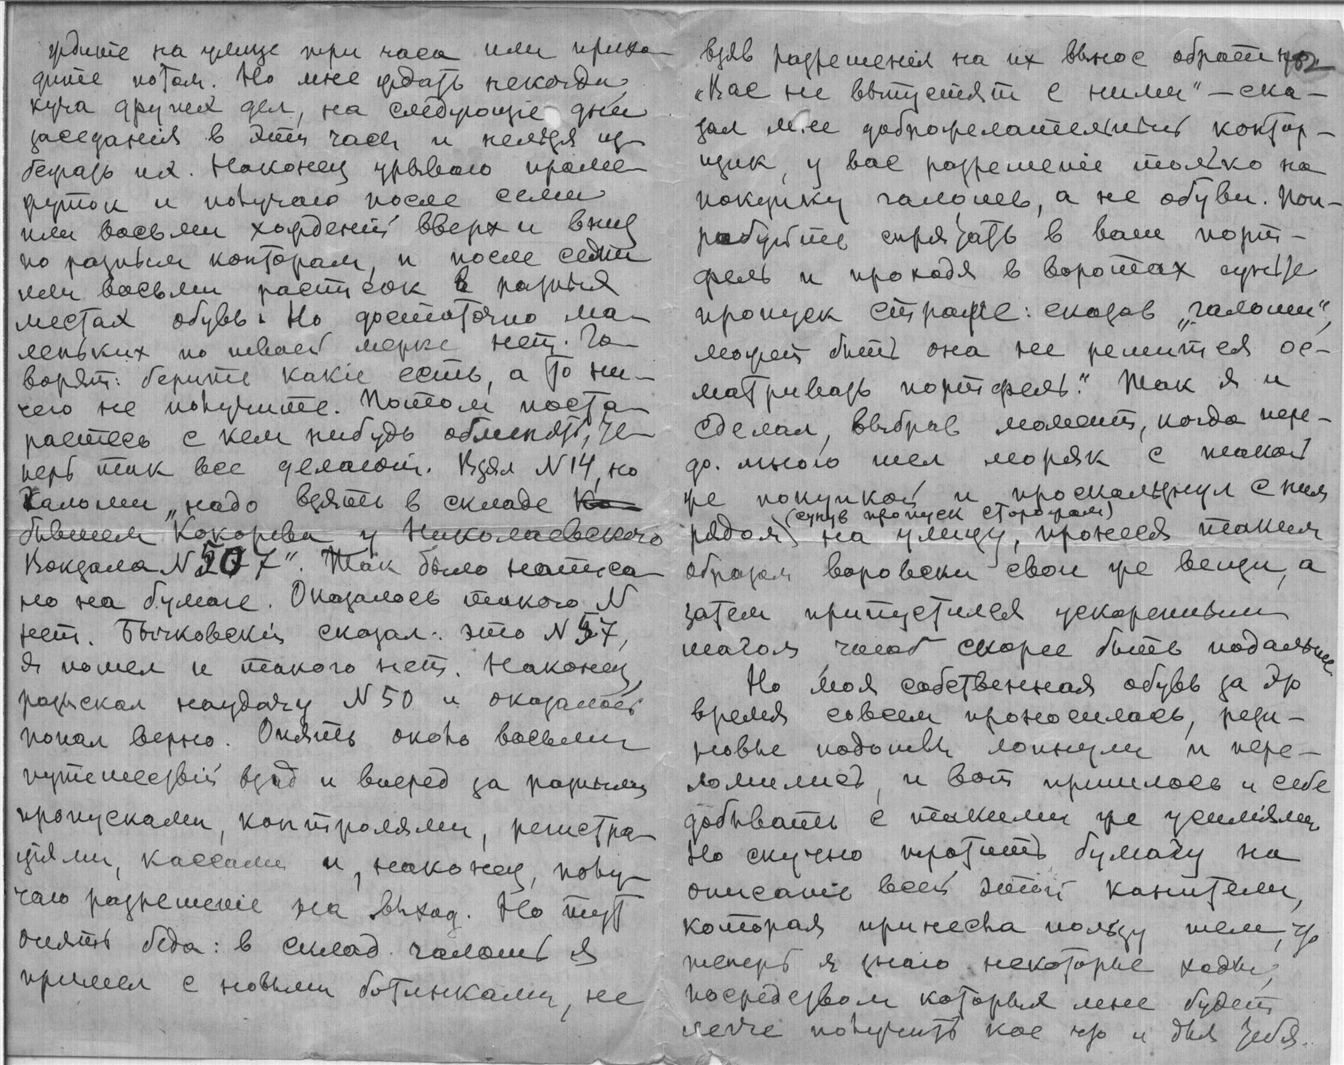 ждите на улице три часа или прихо-
дите потом. Но мне ждать некогда,
куча других дел, на следующіе дни
заседанія в эти часы и нельзя из-
бежать их. Наконец урываю проме-
жуток и получаю после семи
или восьми хожденій вверх и вниз
по разным конторам, и после семи
или восьми расписок в разных
местах обувь. Но достаточно ма-
леньких по твоей мерке нет. Го-
ворят: берите какіе есть, а то ни-
чего не получите. Потом поста-
раетесь с кем нибудь обменять, те-
перь так все делают. Взял N 14, но
Галоши „надо взять в складе
бывшем Кокорева у Николаевского
Вокзала N 507". Так было написа-
но на бумаге. Оказалось такого N
нет. Бычковскій сказал: это N 57,
я пошел и такого нет. Наконец,
разыскал наудачу N 50 и оказалось
попал верно. Опять около восьми
путешествій взад и вперед за разными
пропусками, контролями, регистра-
ціями, кассами и, наконец, полу-
чаю разрешеніе на выход. Но тут
опять беда: в склад галош я
пришел с новыми ботинками, не
взяв разрешенія на их вынос обратно.
„Вас не выпустят с ними" – ска-
зал мне доброжелательный контор-
щик, у вас разрешеніе только на
покупку галошей, а не обуви. Поп-
робуйте спрятать в ваш порт-
фель и проходя в воротах суньте
пропуск страже: сказав „галоши",
может быть она не решится ос-
матривать портфель." Так я и
сделал, выбрав момент, когда пере-
до мною шел моряк с такой
же покупкой и проскользнул с ним
(сунув пропуск сторожам)
рядом на улицу, пронеся таким
образом воровски свои же вещи, а
затем припустился ускоренным
шагом чтоб скорее быть подальше
Но моя собственная обувь за это
время совсем проносилась, рези-
новые подошвы лопнули и пере-
ломились, и вот пришлось и себе
добывать с такими же усиліями
Но скучно тратить бумагу на
описаніе всей этой канители,
которая принесла пользу тем, что
теперь я знаю некоторые ходы,
посредством которых мне будет
легче получить кое что и для тебя.